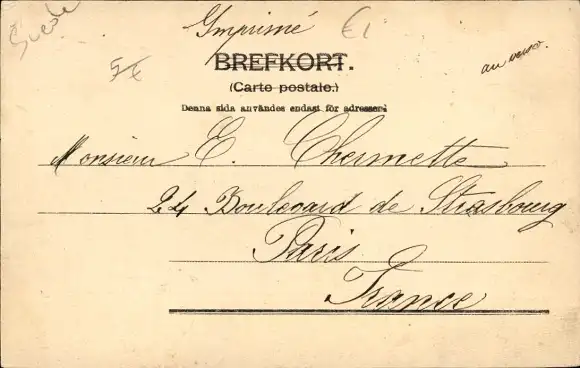 Suede
Imprimé
€1
5€
BREFKORT.
(Carte postale.)
au verso.
Denna sida användes endast för adressen:
Monsieur E. Chermette
24 Boulevard de Strasbourg
Paris
France